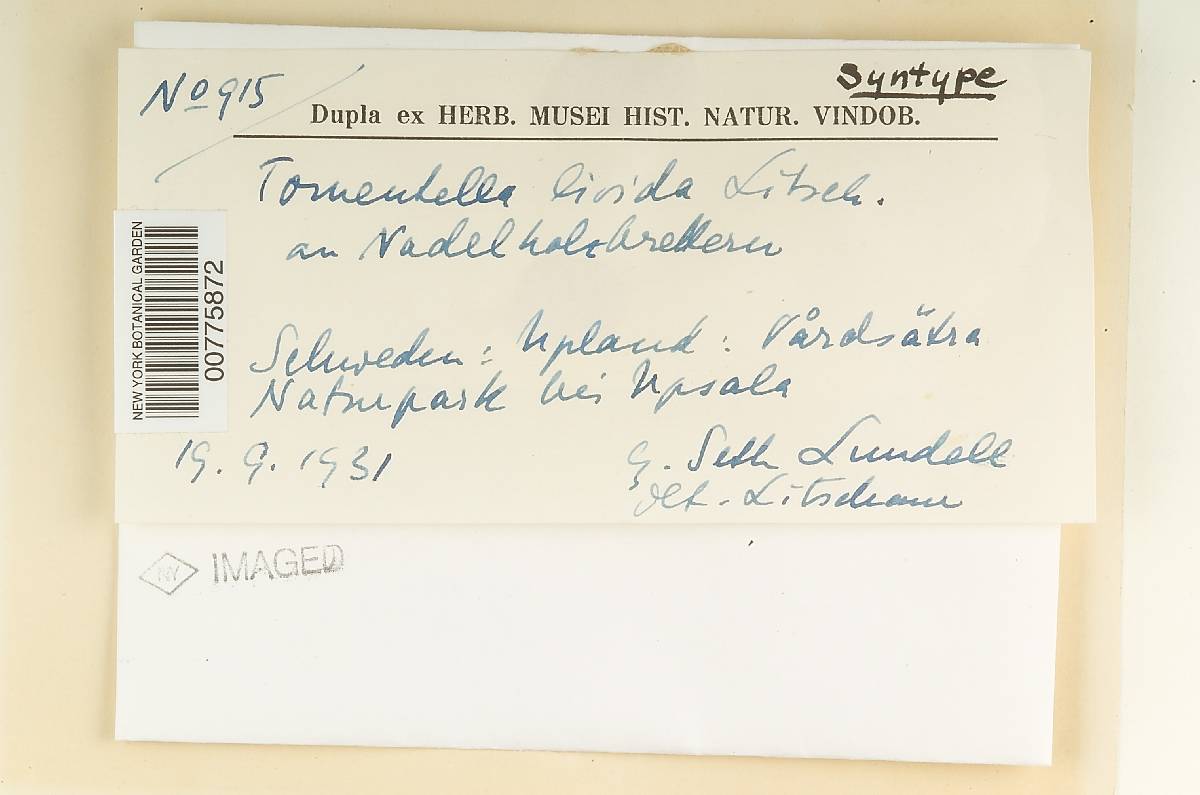 Syntype
No 915
Dupla ex HERB. MUSEI HIST. NATUR. VINDOB.
Tomentella livida Litsch.
an Nadelholzbrettern
Schweden: Upland: Vårdsätra
Naturpark bei Upsala
19. 9. 1931
G. Seth Lundell
det. Litschau
NEW YORK BOTANICAL GARDEN
00775872
NY IMAGED